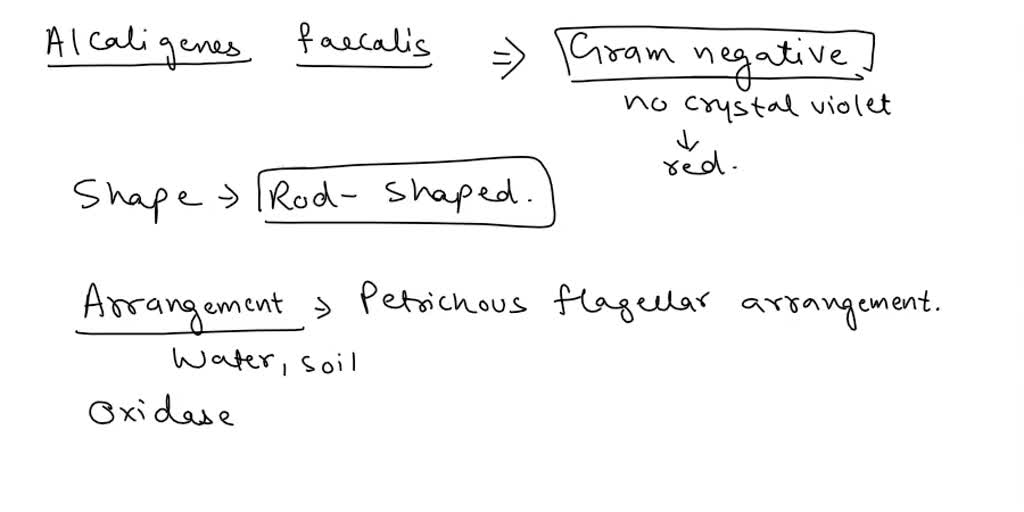 Alcaligenes faecalis ⇒ Gram negative
no crystal violet
↓
red.
Shape → Rod- shaped.
Arrangement → Petrichous flagellar arrangement.
Water, soil
Oxidase